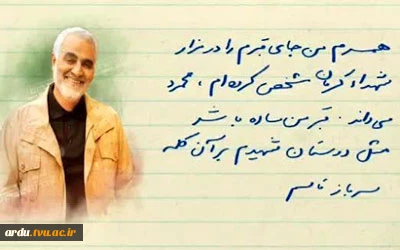 همسرم من جای قبرم را در مزار
شهداء کرمان مشخص کرده‌ام، محمود
می‌داند. قبر من ساده باشد
مثل دوستان شهیدم بر آن کلمه
سرباز قاسم
ardu.tvu.ac.ir